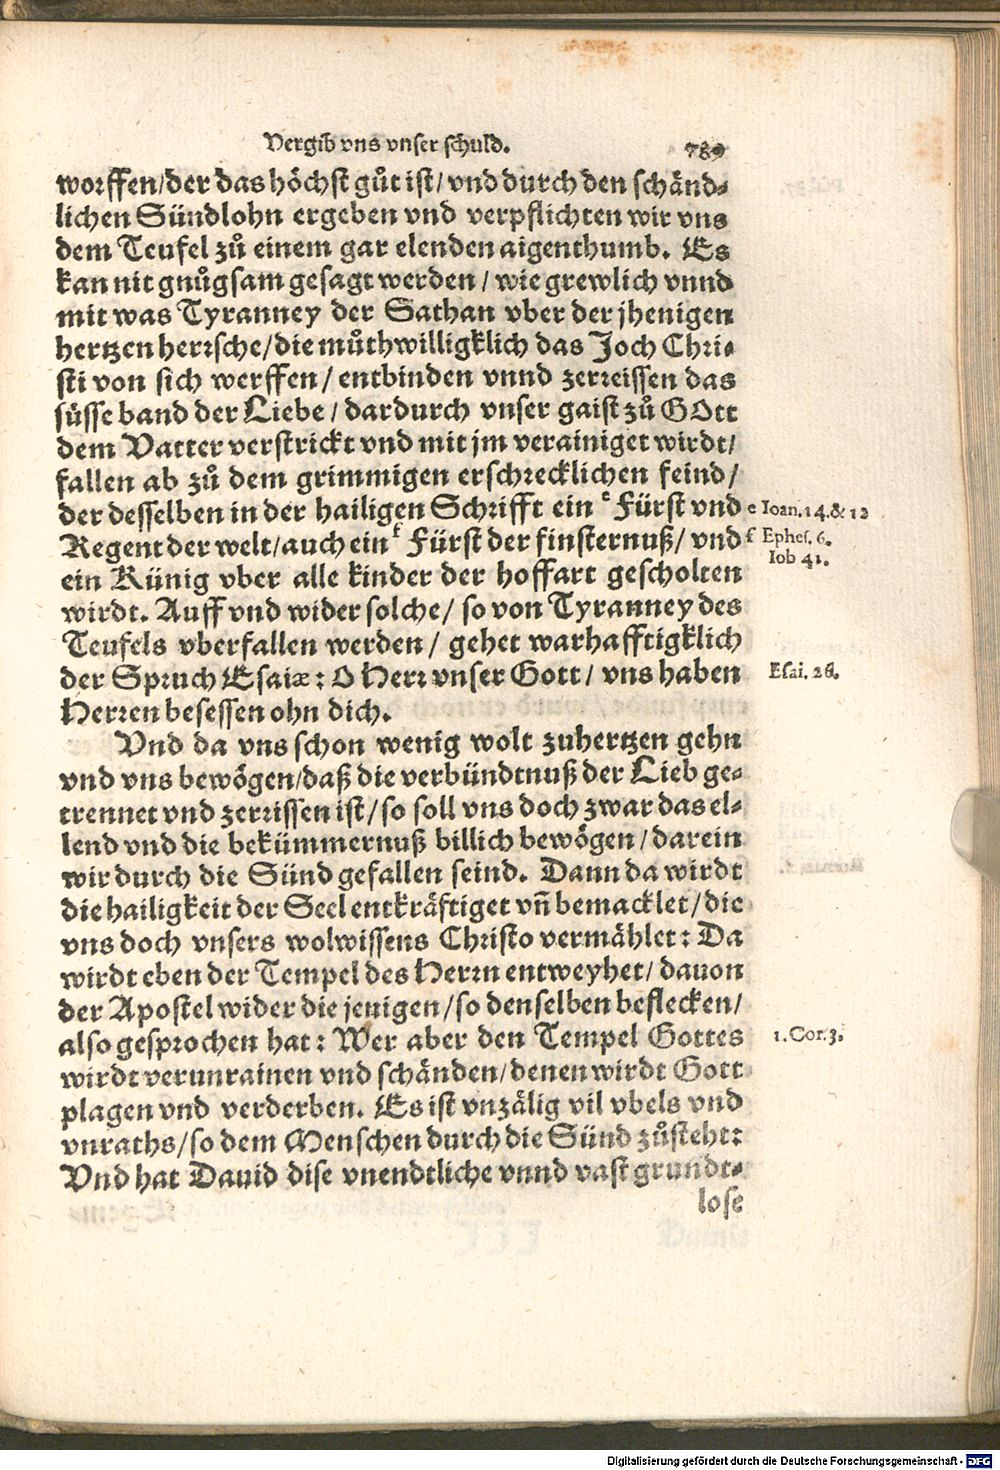 Vergib vns vnser schuld. 789
worffen/der das höchst gůt ist/ vnd durch den schänd-
lichen Sündlohn ergeben vnd verpflichten wir vns
dem Teufel zů einem gar elenden aigenthumb. Es
kan nit gnůgsam gesagt werden / wie grewlich vnnd
mit was Tyranney der Sathan vber der jhenigen
hertzen herrsche/die můthwilligklich das Joch Chri-
sti von sich werffen/ entbinden vnnd zerreissen das
süsse band der Liebe / dardurch vnser gaist zů GOtt
dem Vatter verstrickt vnd mit jm verainiget wirdt/
fallen ab zů dem grimmigen erschrecklichen feind/
der desselben in der hailigen Schrifft ein e Fürst vnd
e Ioan.14.& 12
Regent der welt/auch ein f Fürst der finsternuß/ vnd
f Ephes. 6.
Iob 41.
ein Künig vber alle kinder der hoffart gescholten
wirdt. Auff vnd wider solche/ so von Tyranney des
Teufels vberfallen werden/ gehet warhafftigklich
der Spruch Esaiæ: O Herr vnser Gott/ vns haben
Esai. 26.
Herren besessen ohn dich.
Vnd da vns schon wenig wolt zuhertzen gehn
vnd vns bewögen/daß die verbündtnuß der Lieb ge-
trennet vnd zerrissen ist/so soll vns doch zwar das el-
lend vnd die bekümmernuß billich bewögen/darein
wir durch die Sünd gefallen seind. Dann da wirdt
die hailigkeit der Seel entkräftiget vn̄ bemacklet/die
vns doch vnsers wolwissens Christo vermählet: Da
wirdt eben der Tempel des Herrn entweyhet/ dauon
der Apostel wider die jenigen/so denselben beflecken/
also gesprochen hat: Wer aber den Tempel Gottes
1. Cor. 3.
wirdt verunrainen vnd schänden/denen wirdt Gott
plagen vnd verderben. Es ist vnzälig vil vbels vnd
vnraths/so dem Menschen durch die Sünd zůsteht:
Vnd hat Dauid dise vnendtliche vnnd vast grundt-
lose
Digitalisierung gefördert durch die Deutsche Forschungsgemeinschaft - DFG